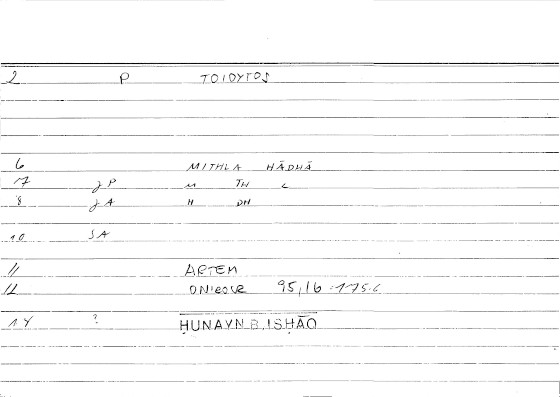 2 P TOIOYTOS
6 MITHLA HĀDHĀ
17 JP M TH L
8 JA H DH
10 SA
11 ARTEM
12 ONIEOCR 95,16 = 175.6
14 ? ḤUNAYN B. ISḤĀQ